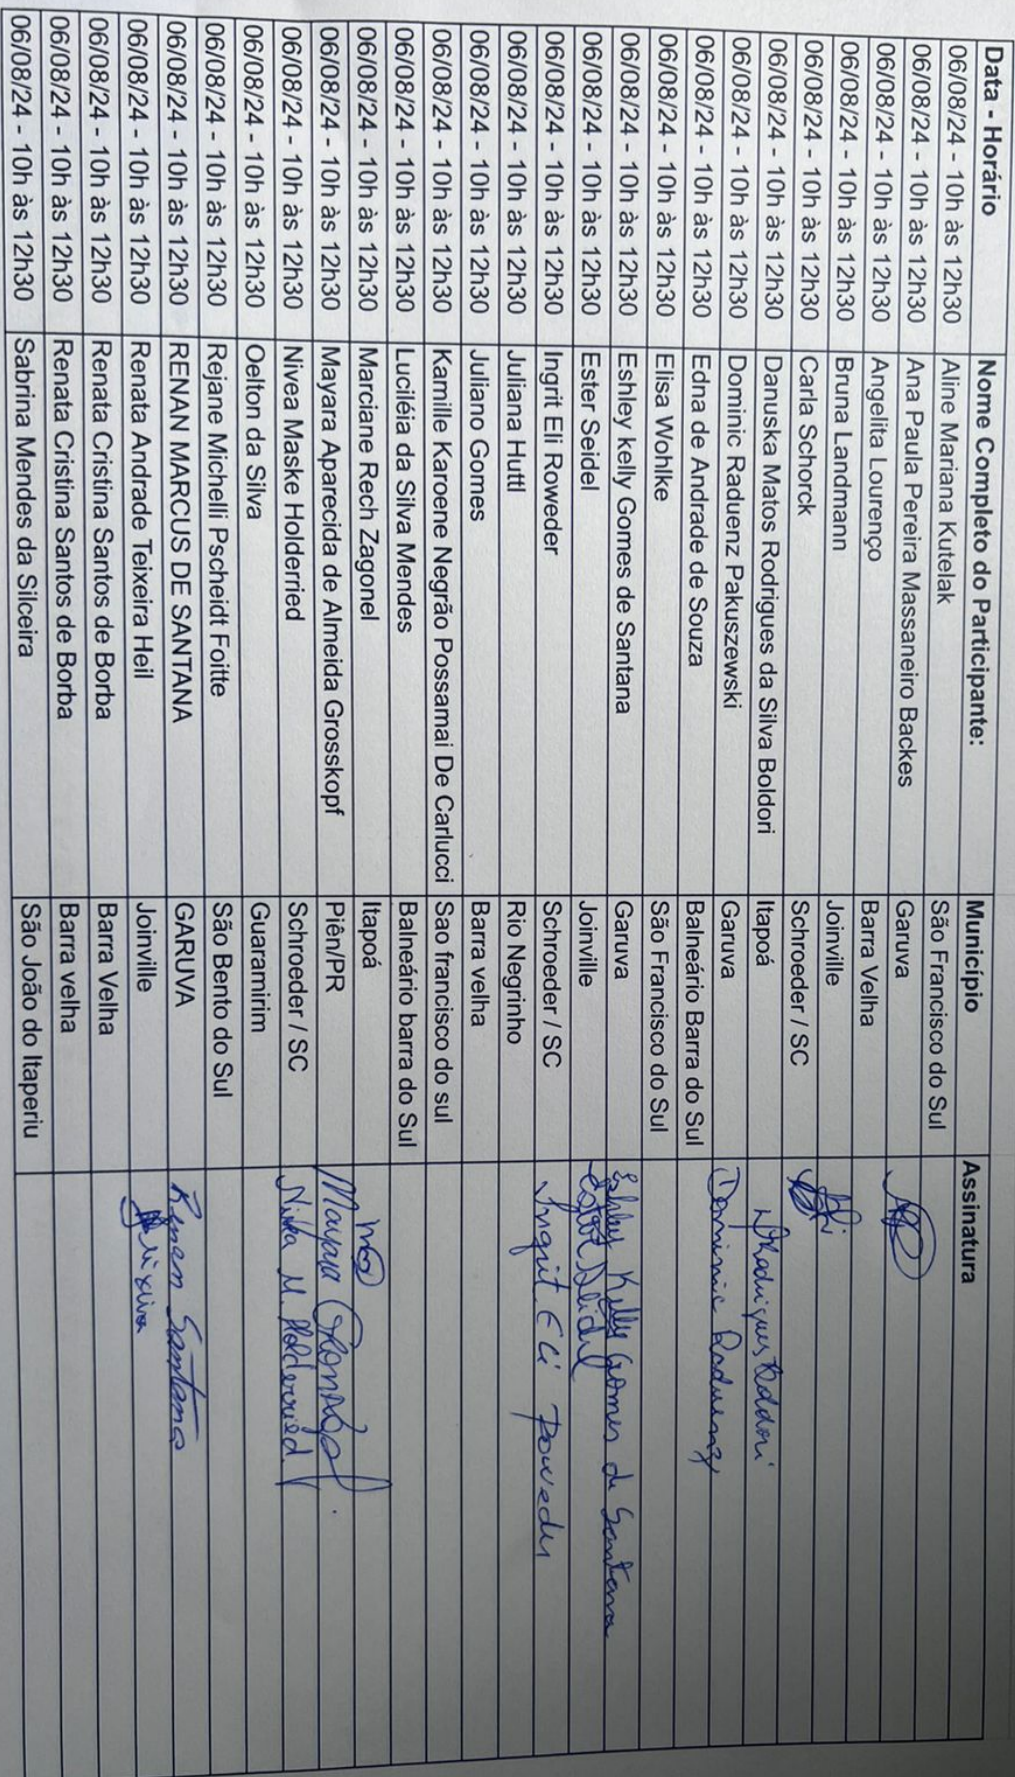 Data - Horário Nome Completo do Participante: Município Assinatura
06/08/24 - 10h às 12h30 Aline Mariana Kutelak São Francisco do Sul
06/08/24 - 10h às 12h30 Ana Paula Pereira Massaneiro Backes Garuva
06/08/24 - 10h às 12h30 Angelita Lourenço Barra Velha
06/08/24 - 10h às 12h30 Bruna Landmann Joinville
06/08/24 - 10h às 12h30 Carla Schorck Schroeder / SC
06/08/24 - 10h às 12h30 Danuska Matos Rodrigues da Silva Boldori Itapoá DRodrigues Boldori
06/08/24 - 10h às 12h30 Dominic Raduenz Pakuszewski Garuva Dominic Raduenz
06/08/24 - 10h às 12h30 Edna de Andrade de Souza Balneário Barra do Sul
06/08/24 - 10h às 12h30 Elisa Wohlke São Francisco do Sul
06/08/24 - 10h às 12h30 Eshley kelly Gomes de Santana Garuva Eshley Kelly Gomes de Santana
06/08/24 - 10h às 12h30 Ester Seidel Joinville Ester Seidel
06/08/24 - 10h às 12h30 Ingrit Eli Roweder Schroeder / SC Ingrit Eli Roweder
06/08/24 - 10h às 12h30 Juliana Huttl Rio Negrinho
06/08/24 - 10h às 12h30 Juliano Gomes Barra velha
06/08/24 - 10h às 12h30 Kamille Karoene Negrão Possamai De Carlucci Sao francisco do sul
06/08/24 - 10h às 12h30 Luciléia da Silva Mendes Balneário barra do Sul
06/08/24 - 10h às 12h30 Marciane Rech Zagonel Itapoá
06/08/24 - 10h às 12h30 Mayara Aparecida de Almeida Grosskopf Piên/PR Mayara Grosskopf
06/08/24 - 10h às 12h30 Nivea Maske Holderried Schroeder / SC Nivea M. Holderried
06/08/24 - 10h às 12h30 Oelton da Silva Guaramirim
06/08/24 - 10h às 12h30 Rejane Michelli Pscheidt Foitte São Bento do Sul
06/08/24 - 10h às 12h30 RENAN MARCUS DE SANTANA GARUVA Renan Santana
06/08/24 - 10h às 12h30 Renata Andrade Teixeira Heil Joinville
06/08/24 - 10h às 12h30 Renata Cristina Santos de Borba Barra Velha
06/08/24 - 10h às 12h30 Renata Cristina Santos de Borba Barra velha
06/08/24 - 10h às 12h30 Sabrina Mendes da Silceira São João do Itaperiu